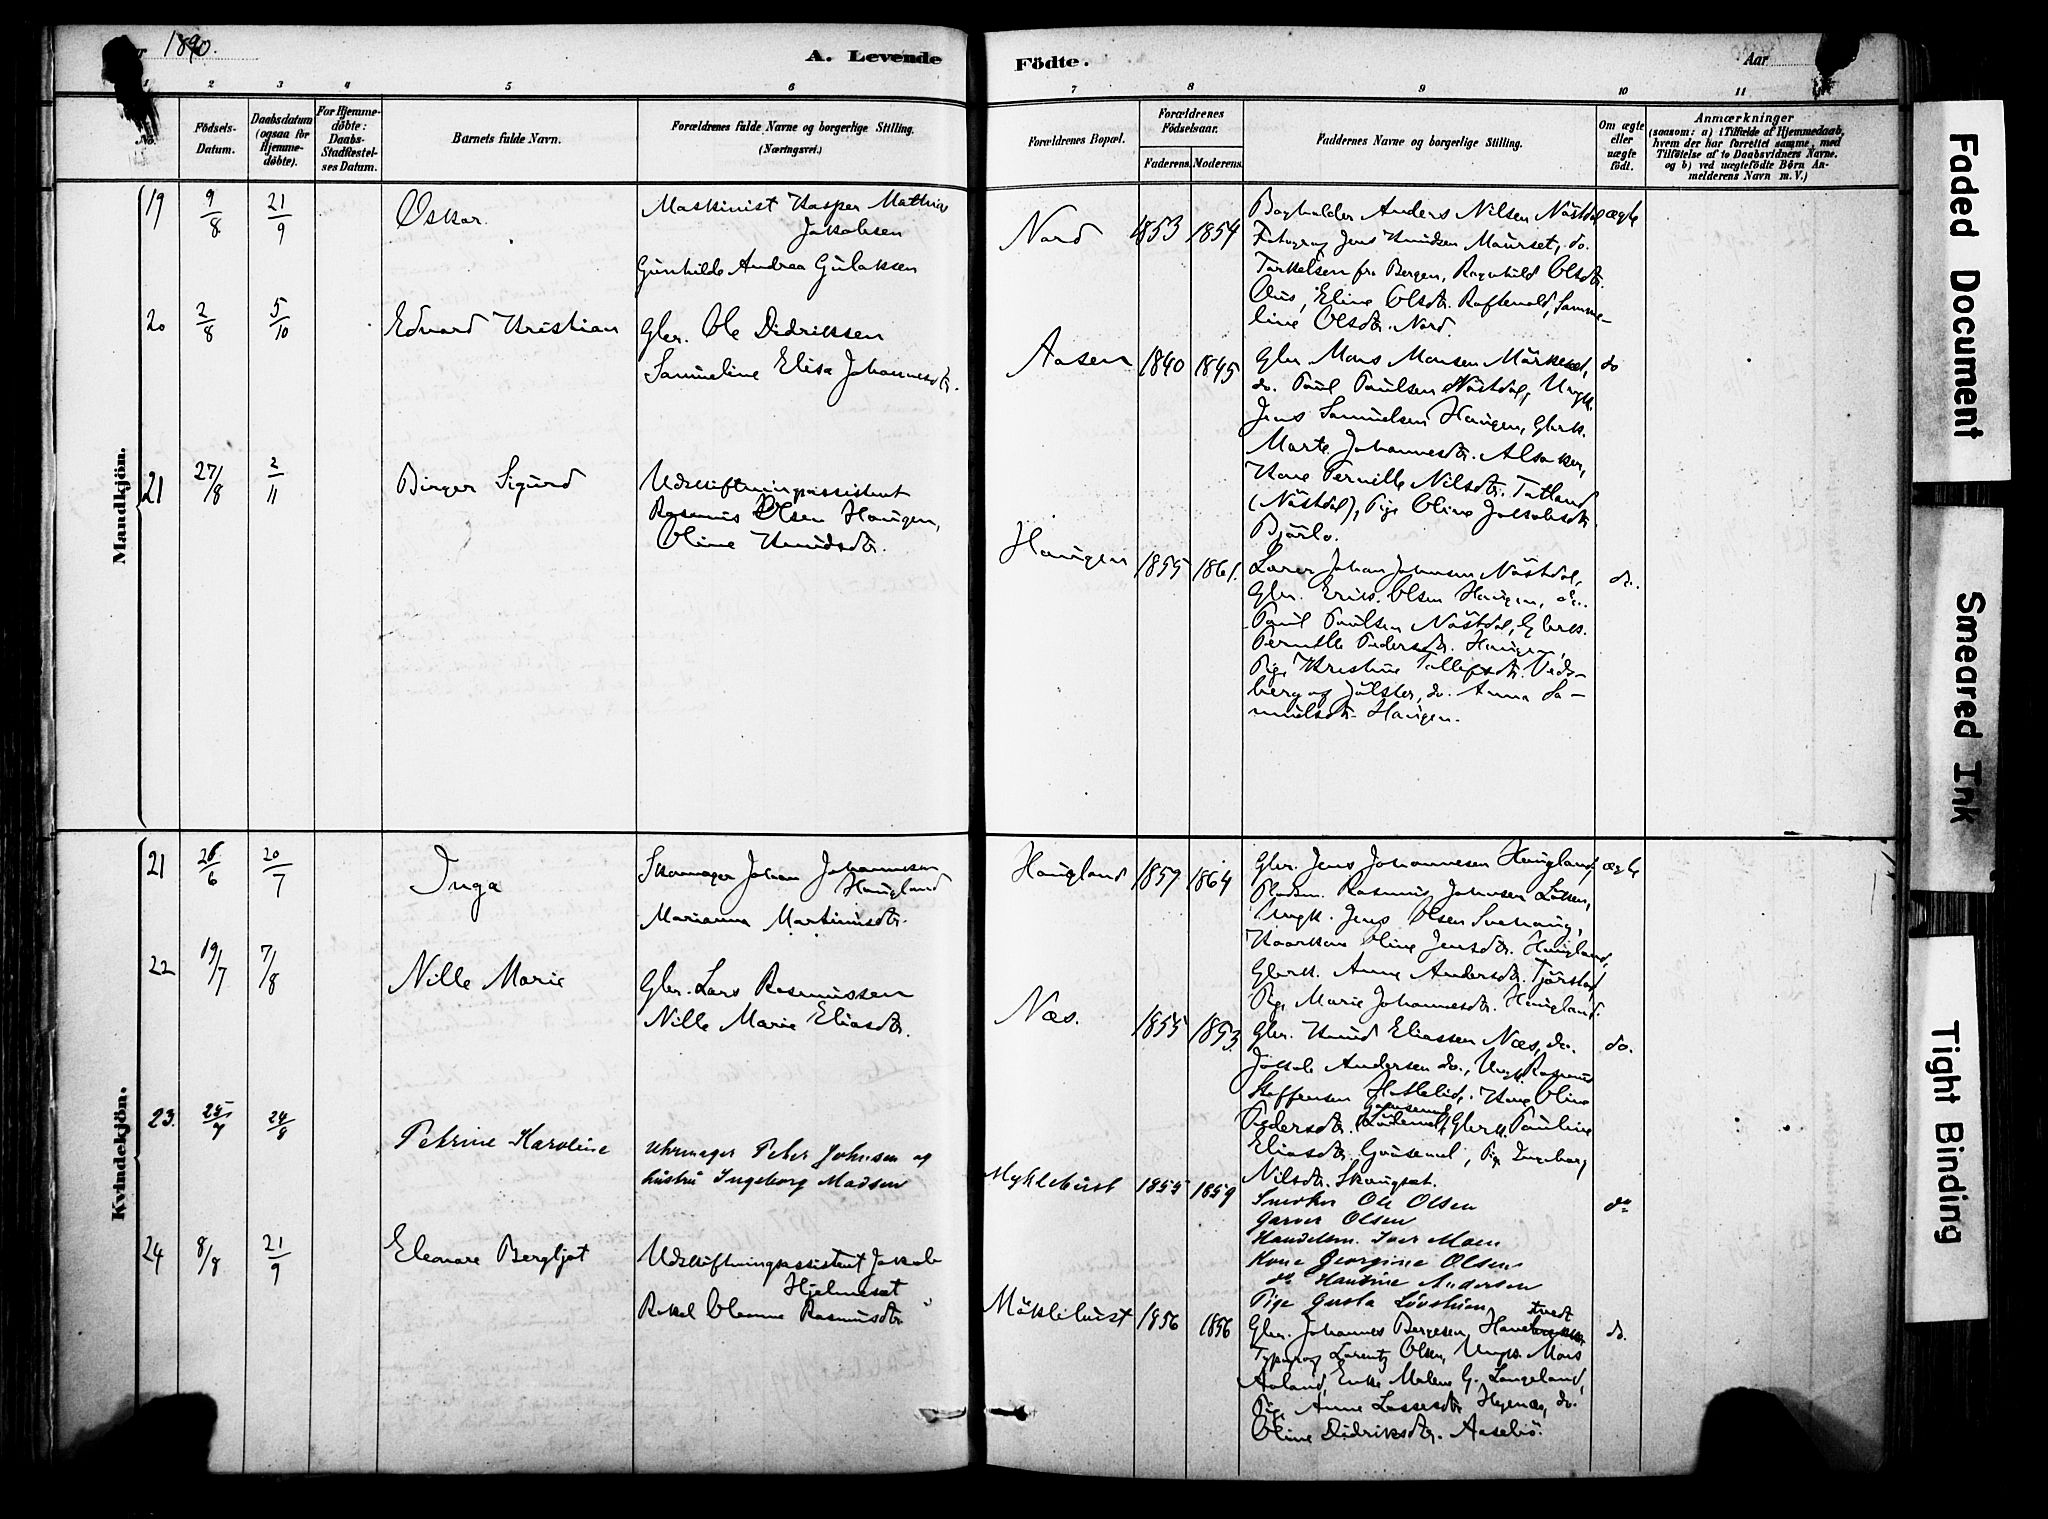 1890.
A. Levende
Födte.
Aar
1 2 3 4 5 6 7 8 9 10 11
No.
Födsels-
Datum.
Daabsdatum
(ogsaa for
Hjemme-
döbte).
For Hjemme-
döbte:
Daabs-
Stadfæstel-
ses Datum.
Barnets fulde Navn.
Forældrenes fulde Navne og borgerlige Stilling.
(Næringsvei.)
Forældrenes Bopæl.
Forældrenes
Födselsaar.
Faderens. Moderens.
Faddernes Navne og borgerlige Stilling.
Om ægte
eller
uægte
födt.
Anmærkninger
(saasom: a) i Tilfælde af Hjemmedaab,
hvem der har forrettet samme, med
Tilföielse af to Daabsvidners Navne.
og b) ved uægtefödte Börn An-
melderens Navn m. V.)
Mandkjön.
19 9/8 21/9 Oskar. Maskinist Kasper Mathias
Jakobsen
Gunhilde Andrea Gulaksen
Nord 1853 1854
Boghalder Anders Nilsen Nöstdal ægte
Fotograf Jens Knudsen Maurset, do.
Torkelsen fra Bergen, Ragnhild Olsdtr.
Eline Olsdtr. Samue-
line Olsdtr. Nord
20 2/8 5/10 Edvard Kristian Gbr. Ole Didriksen
Samueline Elisa Johannesdtr.
Aasen 1840 1845
Gbr Mons Monsen do
do. Paul Paulsen Nöstdal, Ungk.
Jens Samuelsen Haugen, Gbrk.
Marte Johannesdtr. Alsaker,
Kone Pernille Nilsdtr. Tatland
(Nöstdal), Pige Oline Jakobsdtr.
Bjørlo.
21 27/8 2/11 Birger Sigurd Udskiftningsassistent
Rasmus Olsen Haugen,
Oline Knudsdtr.
Haugen 1855 1861.
Lærer Johan Johnsen Nöstdal, do.
Gbr. Erik Olsen Haugen, do.
Paul Paulsen Nöstdal, Gbrk.
Pernille Pedersdtr. Haugen,
Pige Kristine Tollefsdtr. Veds-
berg af Jölster, do. Anna Sa-
muelsdtr. Haugen.
Kvindekjön.
21 26/6 20/7 Inga Skomager Johan Johannesen
Haugland
Marianna Martinusdtr.
Haugland 1859 1864
Gbr. Jens Johannesen Haugland, ægte
Rasmus Johnsen
Ungk. Jens Olsen Svehaug,
Kaarkone Oline Jensdtr. Haugland,
Gbrk. Anne Andersdtr. Tjörstad,
Pige Marie Johannesdtr. Haugland.
22 19/7 7/8 Nille Marie Gbr. Lars Rasmussen
Nille Marie Eliasdtr.
Næs. 1855 1853.
Gbr. Knud Eliassen Næs, do. do.
Jakob Andersen do., Ungk. Rasmus
Steffensen Hatlelid, Kone Oline
Pedersdtr. Gbrk. Pauline
Eliasdtr. Pige Ingeborg
Nilsdtr. Skaugset.
23. 25/7 24/8 Petrine Karoline Uhrmager Peter Johnsen og
hustru Ingeborg Madsen
Myklebust 1855 1859
Snedker Ole Olsen do
Garver Olsen
Handelsm. Iver Moen
Kone Georgine Olsen
do Hansine Andersen
Pige Gusta Lövström
24 8/8 21/9 Eleonore Bergljot Udskiftningsassistent Jakob
Hjelmeset
Rakel Oleanne Rasmusdtr.
Möklebust 1856 1856
tvedt
Gbr. Johannes Børgesen, do.
Typograf Lorentz Olsen, Ungk. Mons
Aaland, Enke Malene G. Langeland,
Pige Anne Lassesdtr. do.
Oline Didriksdtr. Aasebö.
Faded Document
Smeared Ink
Tight Binding